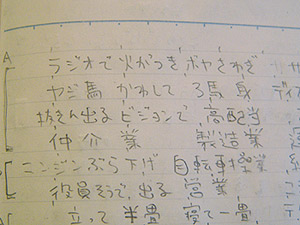 A
ラジオで火がつき ボヤさわぎ サ
ヤジ馬 かわして 3馬身 デイ
抜きん出る ビジョンで、高配当
仲介業 製造業
ニンジンぶら下げ 自転車操業
役員そろって、出る 営業
立って 半畳 寝て一畳、